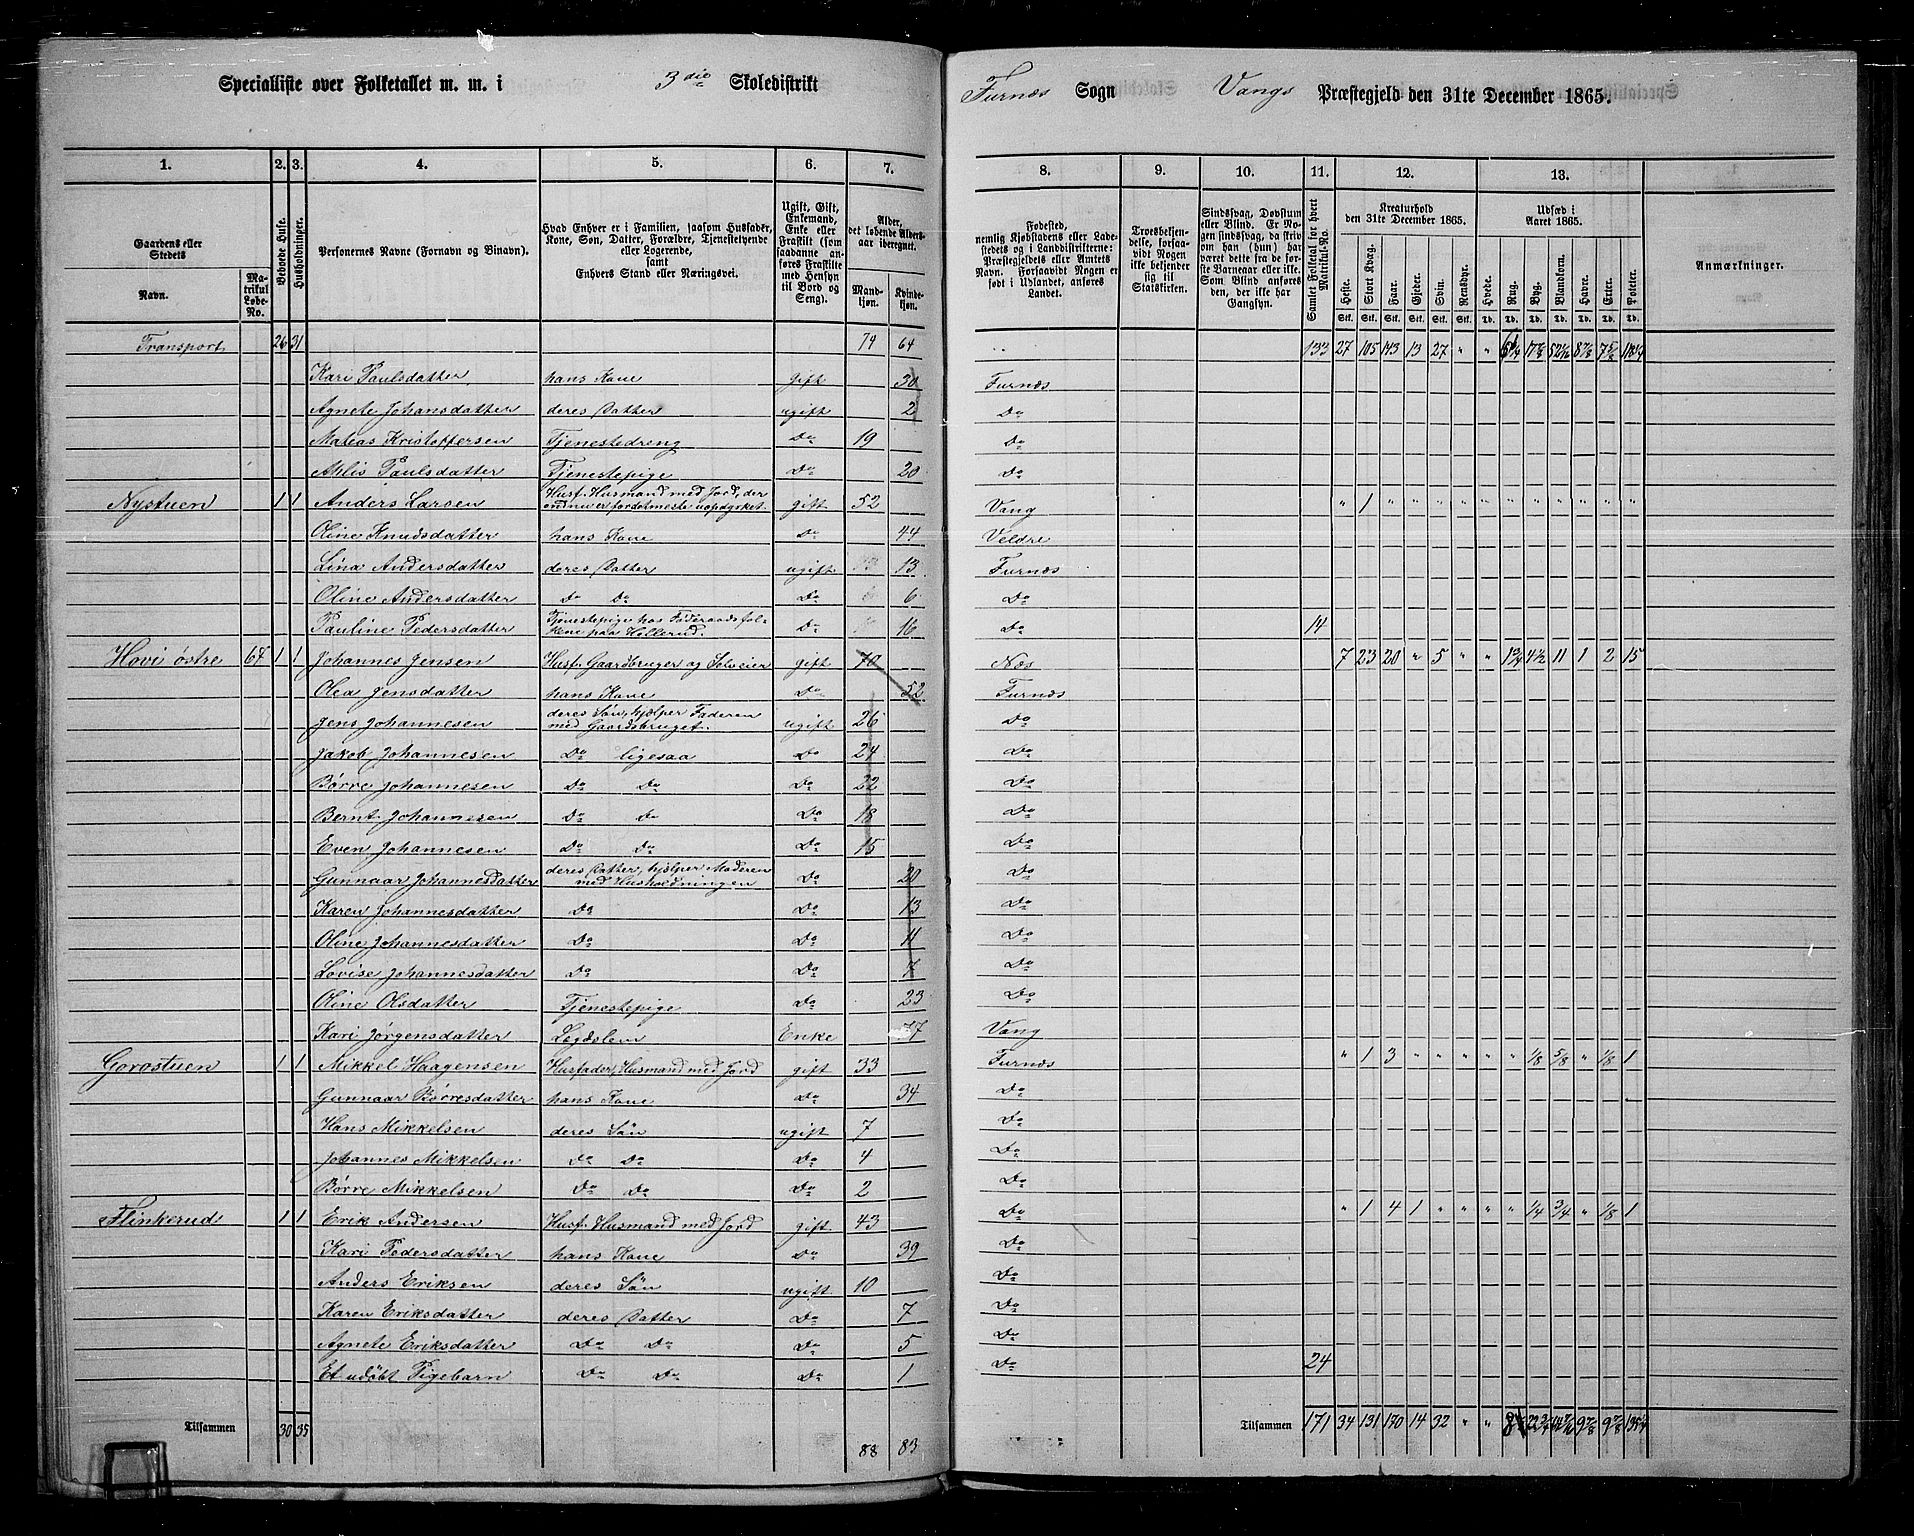 Specialliste over Folketallet m. m. i 3die Skoledistrikt Furnæs Sogn Vangs Præstegjeld den 31te December 1865.
1. 2. 3. 4. 5. 6. 7. 8. 9. 10. 11. 12. 13.
Gaardens eller Stedets
Navn.
Matrikul Løbe-No.
Beboede Huse.
Husholdninger.
Personernes Navne (Fornavn og Binavn).
Hvad Enhver er i Familien, saasom Husfader, Kone, Søn, Datter, Forældre, Tjenestetyende eller Logerende, samt Enhvers Stand eller Næringsvei.
Ugift, Gift, Enkemand, Enke eller Fraskilt (som saadanne anføres Fraskilte med Hensyn til Bord og Seng).
Alder, det løbende Aldersaar iberegnet.
Mandkjøn. Kvindekjøn.
Fødested, nemlig Kjøbstadens eller Ladestedets og i Landdistrikterne: Præstegjeldets eller Amtets Navn. Forsaavidt Nogen er født i Udlandet, anføres Landet.
Troesbekjendelse, forsaavidt Nogen ikke bekjender sig til Statskirken.
Sindssvag, Døvstum eller Blind. Er Nogen sindssvag, da skrives om han (hun) har været dette fra de første Barneaar eller ikke. Som Blind anføres den, der ikke har Gangsyn.
Samlet Folketal for hvert Matrikul-No.
Kreaturhold den 31te December 1865.
Heste. Stort Kvæg. Faar. Gjeder. Svin. Rensdyr.
Stk. Stk. Stk. Stk. Stk. Stk.
Udsæd i Aaret 1865.
Hvede. Rug. Byg. Blandkorn. Havre. Erter. Poteter.
Td. Td. Td. Td. Td. Td. Td.
Anmærkninger.
Transport 26 31 74 64 133 27 105 143 13 27 " "
Kari Paulsdatter hans Kone gift 30 Furnæs
Agnete Johansdatter deres Datter ugift 2 Do
Mateas Kristoffersen Tjenestedreng Do 19 Do
Ahlis Paulsdatter Tjenestepige Do 20 Do
Nystuen 1 1 Anders Larsen Husf. Husmand med Jord, der endnu er fordetmeste uopdyrket. gift 52 Vang " 1 " " " " " " " " " " "
Oline Knudsdatter hans Kone Do 44 Veldre
Lina Andersdatter deres Datter ugift 13 Furnæs
Oline Andersdatter Do Do Do 6 Do
Pauline Pedersdatter Tjenestepige hos Føderaadsfolkene paa Hollerud. Do 16 Do 14
Hovi østre 67 1 1 Johannes Jensen Husf. Gaardbruger og Selveier gift 70 Næs 7 23 20 " 5 " " 1 3/4 4 1/2 11 1 2 15
Olea Jensdatter hans Kone Do 52 Furnæs
Jens Johannesen deres Søn, hjelper Faderen med Gaardsbruget. ugift 26 Do
Jakob Johannesen Do ligesaa Do 24 Do
Børre Johannesen Do Do Do 22 Do
Bernt Johannesen Do Do Do 18 Do
Even Johannesen Do Do Do 15 Do
Gunnaar Johannesdatter deres Datter, hjelper Moderen med Husholdningen Do 20 Do
Karen Johannesdatter Do Do 13 Do
Oline Johannesdatter Do Do 11 Do
Lovise Johannesdatter Do Do 7 Do
Oline Olsdatter Tjenestepige Do 23 Do
Kari Jørgensdatter Lægdslem Enke 77 Vang
Gorostuen 1 1 Mikkel Haagensen Husfader, Husmand med Jord gift 33 Furnæs " 1 3 " " " " " 1/8 5/8 " 1/8 1
Gunnaar Børresdatter hans Kone Do 34 Do
Hans Mikkelsen deres Søn ugift 7 Do
Johannes Mikkelsen Do Do Do 4 Do
Børre Mikkelsen Do Do Do 2 Do
Flinkerud 1 1 Erik Andersen Husf. Husmand med Jord gift 43 Do " 1 4 1 " " " " 1/4 3/4 " 1/8 1
Kari Pedersdatter hans Kone Do 39 Do
Anders Eriksen deres Søn ugift 10 Do
Karen Eriksdatter deres Datter Do 7 Do
Agnete Eriksdatter Do Do Do 5 Do
Et udøbt Pigebarn Do Do Do 1 Do 24
Tilsammen 30 35 88 83 Tilsammen 171 34 131 170 14 32 " "